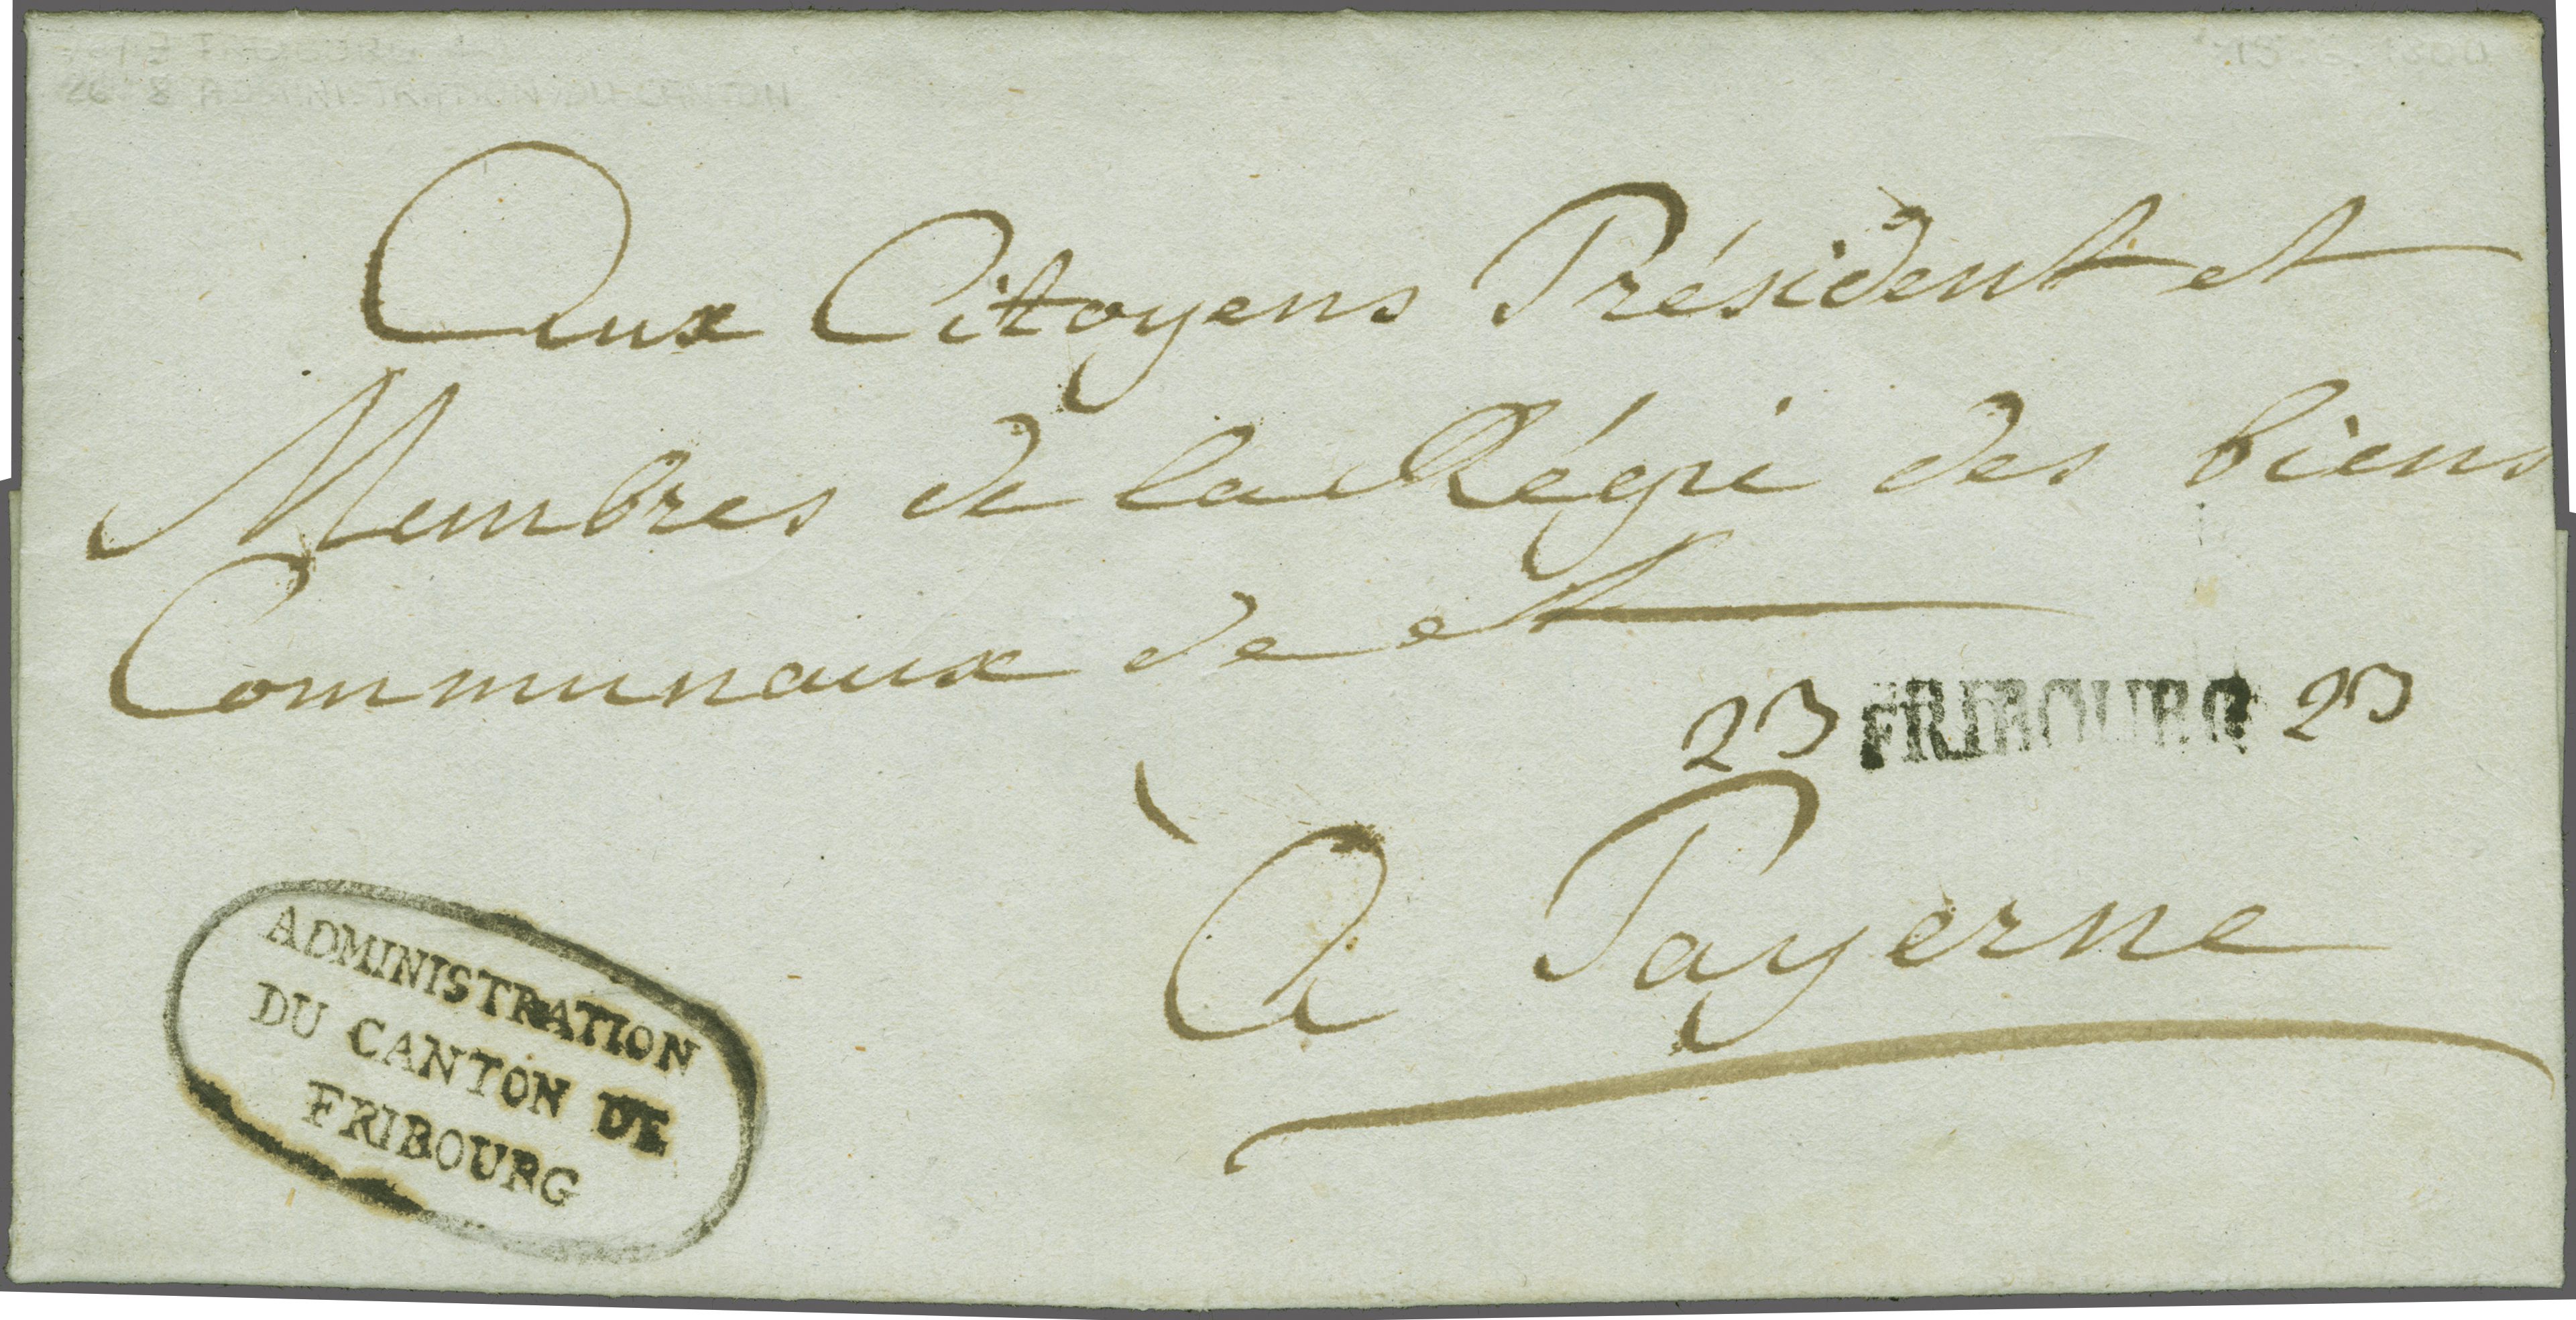 FRIBOURG
ADMINISTRATION DU CANTON
15.6.1800
Aux Citoyens Président et
Membres de la Régie des biens
Communaux de et
23 FRIBOURG 23
à Payerne
ADMINISTRATION
DU CANTON DE
FRIBOURG